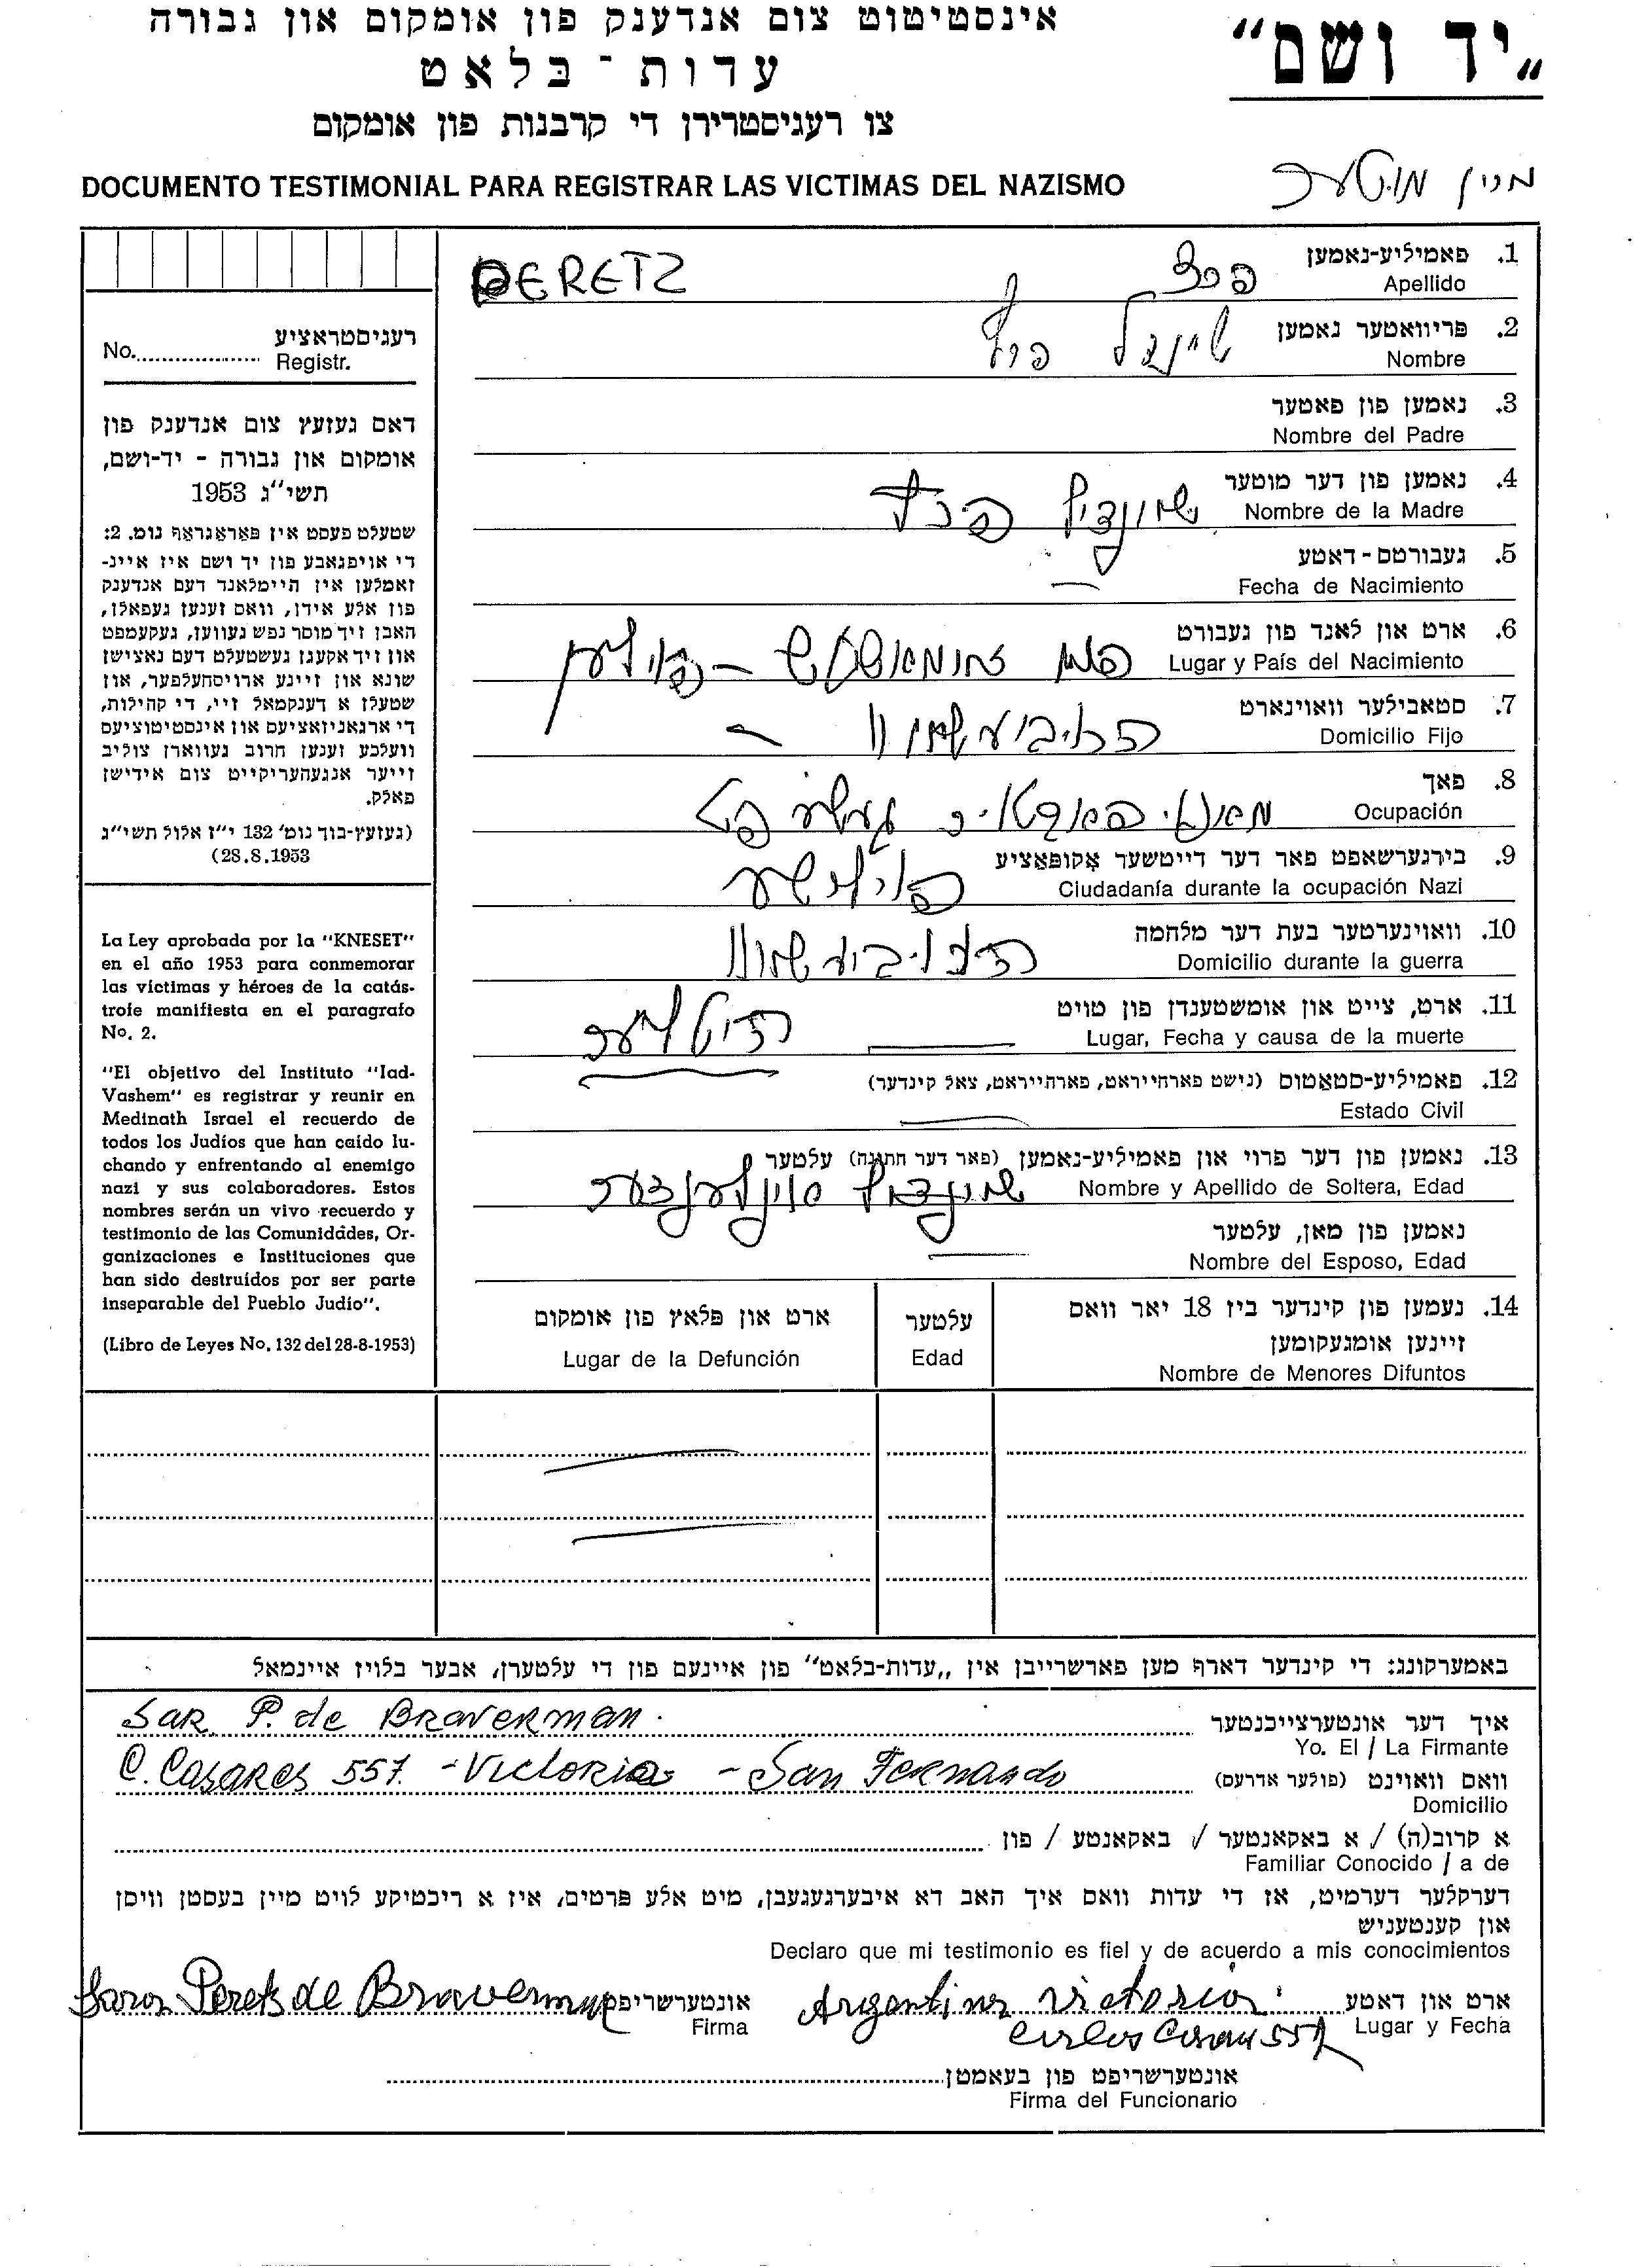 „יד ושם“
אינסטיטוט צום אנדענק פון אומקום און גבורה
עדות־בלאט
צו רעגיסטרירן די קרבנות פון אומקום
DOCUMENTO TESTIMONIAL PARA REGISTRAR LAS VICTIMAS DEL NAZISMO
מיין מוטער
1. פאמיליע-נאמען
Apellido
פרץ
PERETZ
2. פריוואטער נאמען
Nombre
שיינדל פרץ
3. נאמען פון פאטער
Nombre del Padre
4. נאמען פון דער מוטער
Nombre de la Madre
שיינדל פרץ
5. געבורטס-דאטע
Fecha de Nacimiento
—
6. ארט און לאנד פון געבורט
Lugar y País del Nacimiento
– פוילען
7. סטאבילער וואוינארט
Domicilio Fijo
8. פאך
Ocupación
געשעפט
9. בירגערשאפט פאר דער דייטשער אָקופּאַציע
Ciudadanía durante la ocupación Nazi
פוילישע
10. וואוינערטער בעת דער מלחמה
Domicilio durante la guerra
11. ארט, צייט און אומשטענדן פון טויט
Lugar, Fecha y causa de la muerte
היטלער
12. פאמיליע-סטאַטוס (נישט פארהייראט, פארהייראט, צאל קינדער)
Estado Civil
13. נאמען פון דער פרוי און פאמיליע-נאמען (פאר דער חתונה) עלטער
Nombre y Apellido de Soltera, Edad
שיינדל
נאמען פון מאן, עלטער
Nombre del Esposo, Edad
14. נעמען פון קינדער ביז 18 יאר וואס
זיינען אומגעקומען
Nombre de Menores Difuntos
עלטער
Edad
ארט און פלאץ פון אומקום
Lugar de la Defunción
רעגיסטראציע
No. Registr.
דאס געזעץ צום אנדענק פון
אומקום און גבורה – יד-ושם,
תשי״ג 1953
שטעלט פעסט אין פּאַראַגראַף נומ. 2:
די אויפגאבע פון יד ושם איז איינ-
זאמלען אין היימלאנד דעם אנדענק
פון אלע אידן, וואס זענען געפאלן,
האבן זיך מוסר נפש געווען, געקעמפט
און זיך אקעגן געשטעלט דעם נאצישן
שונא און זיינע ארויסהעלפער, און
שטעלן א דענקמאל זיי, די קהילות,
די ארגאניזאציעס און אינסטיטוציעס
וועלכע זענען חרוב געווארן צוליב
זייער אנגעהעריקייט צום אידישן
פאלק.
(געזעץ-בוך נומ׳ 132 י״ז אלול תשי״ג
28.8.1953)
La Ley aprobada por la "KNESET"
en el año 1953 para conmemorar
las víctimas y héroes de la catás-
trofe manifiesta en el paragrafo
No. 2.
"El objetivo del Instituto "Iad-
Vashem" es registrar y reunir en
Medinath Israel el recuerdo de
todos los Judíos que han caído lu-
chando y enfrentando al enemigo
nazi y sus colaboradores. Estos
nombres serán un vivo recuerdo y
testimonio de las Comunidades, Or-
ganizaciones e Instituciones que
han sido destruídos por ser parte
inseparable del Pueblo Judío".
(Libro de Leyes No. 132 del 28-8-1953)
באמערקונג: די קינדער דארף מען פארשרייבן אין „עדות-בלאט״ פון איינעם פון די עלטערן, אבער בלויז איינמאל
איך דער אונטערצייכנטער
Yo. El / La Firmante
Sar. P. de Braverman.
וואס וואוינט (פולער אדרעס)
Domicilio
C. Casares 557. - Victoria - San Fernando
א קרוב(ה) / א באקאנטער / באקאנטע / פון
Familiar Conocido / a de
דערקלער דערמיט, אז די עדות וואס איך האב דא איבערגעגעבן, מיט אלע פרטים, איז א ריכטיקע לויט מיין בעסטן וויסן
און קענטעניש
Declaro que mi testimonio es fiel y de acuerdo a mis conocimientos
ארט און דאטע
Lugar y Fecha
Argentina Victoria
Carlos Casares 557
אונטערשריפט
Firma
Sara Perets de Braverman
אונטערשריפט פון בעאמטן
Firma del Funcionario